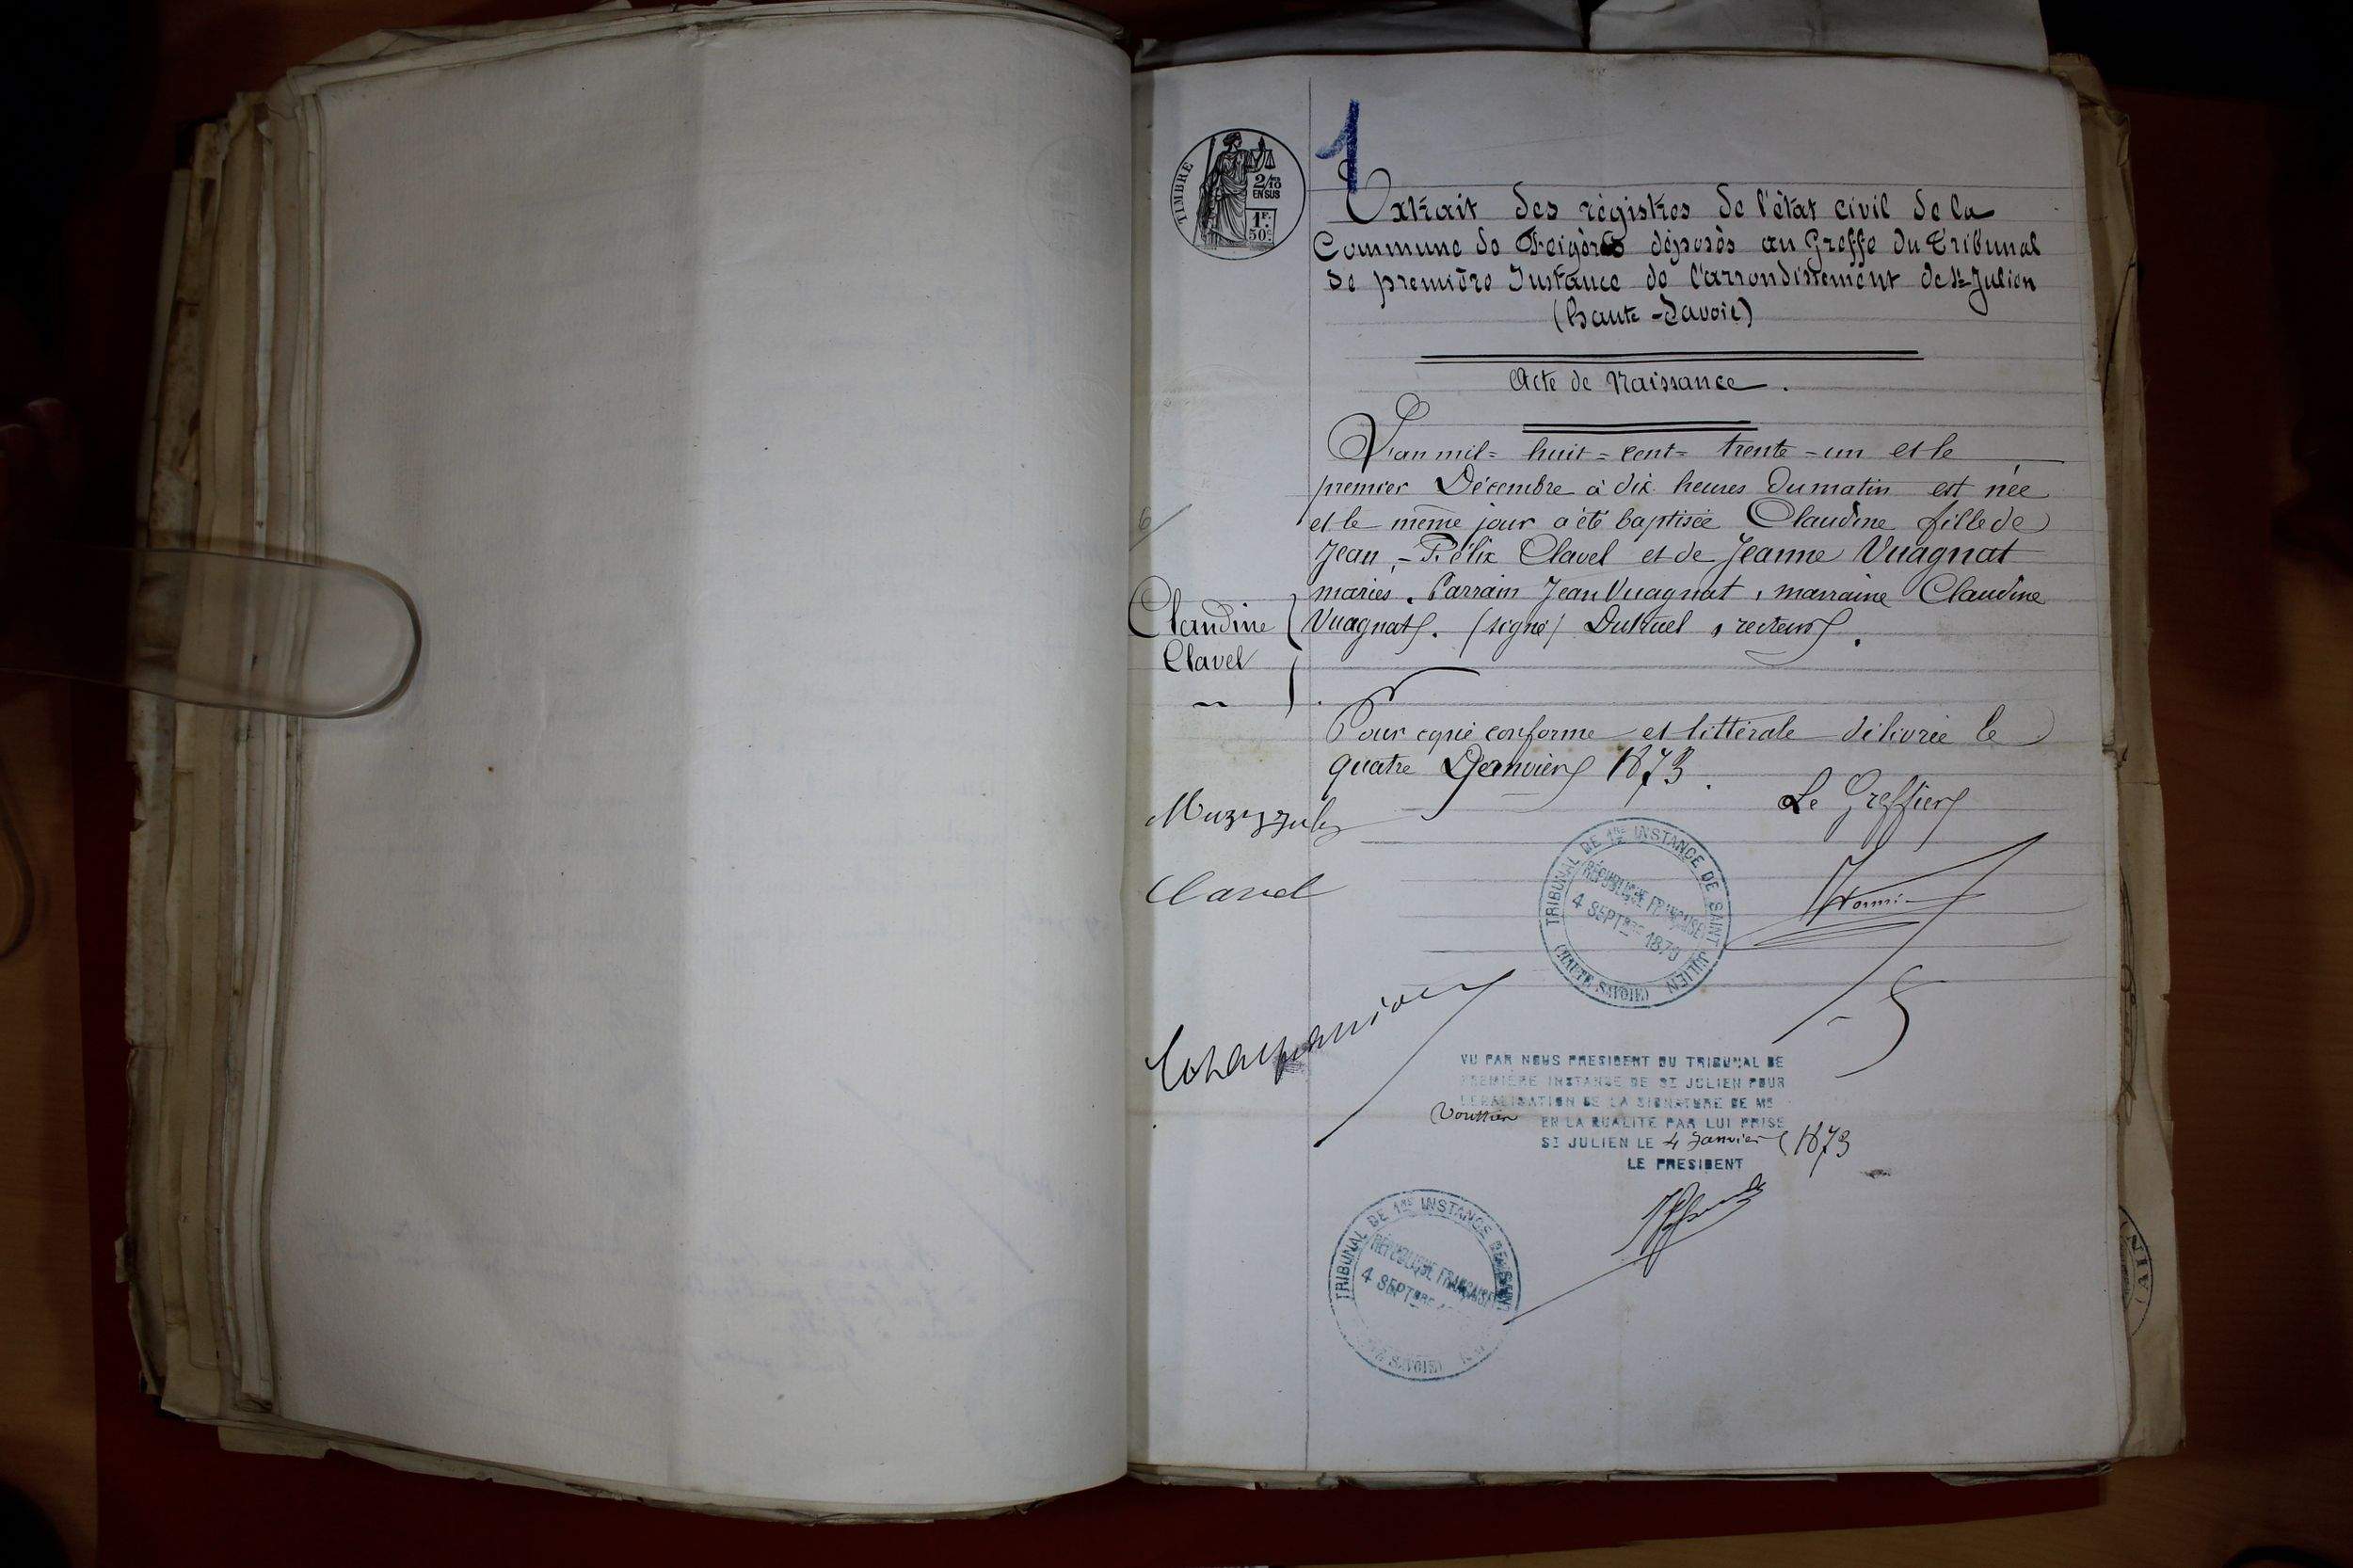 1
TIMBRE
2/10
EN SUS
1F.
50c
Extrait des régistres de l'état civil de la
Commune de Feigères déposés au Greffe du Tribunal
de première Instance de l'arrondissement de St Julien
(haute-Savoie)
Acte de Naissance.
L'an mil= huit=cent= trente-un et le
premier Décembre à dix heures du matin est née
et le même jour a été baptisée Claudine fille de
Jean,-Félix Clavel et de Jeanne Vuagnat
mariés. Parrain Jean Vuagnat, marraine Claudine
Vuagnat. (signé) , recteur.
Claudine
Clavel
Pour copie conforme et littérale délivrée le
quatre Janvier 1873.
Le Greffier
Clavel
TRIBUNAL DE 1RE INSTANCE DE SAINT JULIEN
RÉPUBLIQUE FRANÇAISE
4 SEPTBRE 1870
(HAUTE SAVOIE)
VU PAR NOUS PRESIDENT DU TRIBUNAL DE
PREMIÈRE INSTANCE DE ST JULIEN POUR
LEGALISATION DE LA SIGNATURE DE ME
EN LA QUALITE PAR LUI PRISE
ST JULIEN LE 4 Janvier 1873
LE PRESIDENT
TRIBUNAL DE 1RE INSTANCE DE SAINT
RÉPUBLIQUE FRANÇAISE
4 SEPTBRE
SAVOIE)